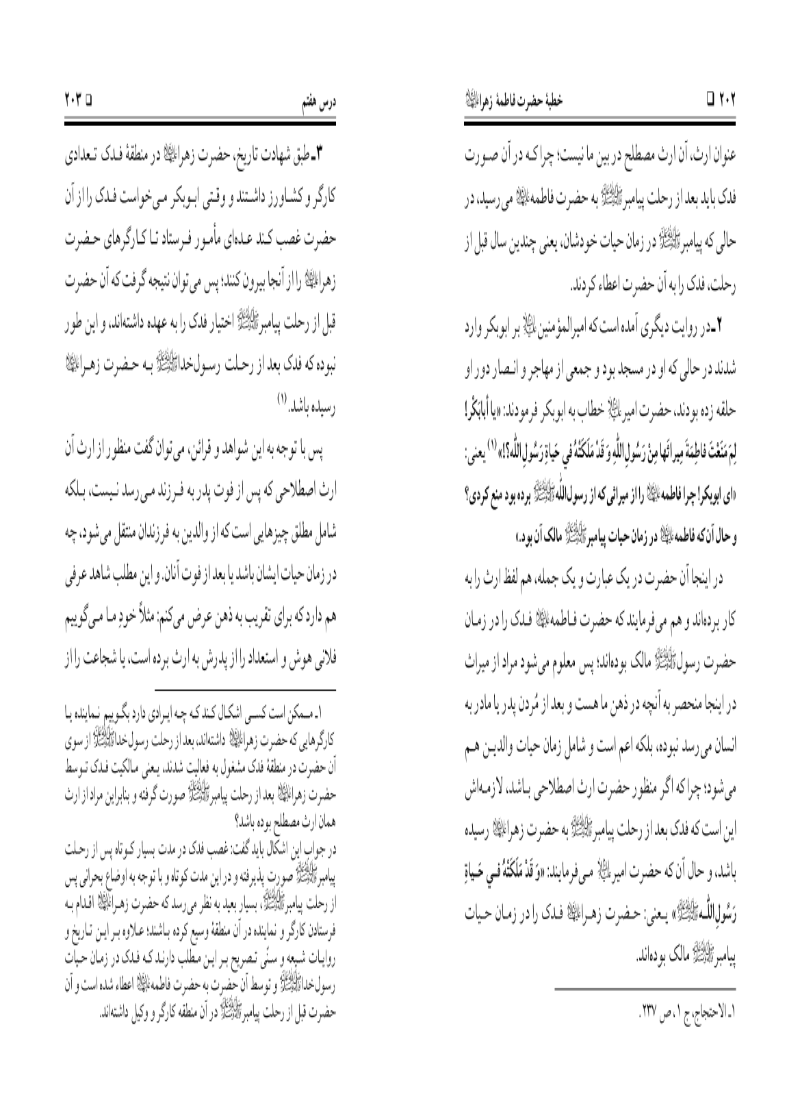 ۲۰۲ ❑ خطبهٔ حضرت فاطمهٔ زهراﷺ
عنوان ارث، آن ارث مصطلح در بین ما نیست؛ چرا که در آن صورت
فدک باید بعد از رحلت پیامبرﷺ به حضرت فاطمه می‌رسید، در
حالی که پیامبرﷺ در زمان حیات خودشان، یعنی چندین سال قبل از
رحلت، فدک را به آن حضرت اعطاء کردند.
۲ـ در روایت دیگری آمده است که امیرالمؤمنین بر ابوبکر وارد
شدند در حالی که او در مسجد بود و جمعی از مهاجر و انصار دور او
حلقه زده بودند، حضرت امیر خطاب به ابوبکر فرمودند: «یا أبابَکْر!
لِمَ مَنَعْتَ فاطِمَةَ مِیراثَها مِنْ رَسُولِ‌اللّهِ وَ قَدْ مَلَکَتْهُ فِي حَیاةِ رَسُولِ‌اللّه؟!»(۱) یعنی:
«ای ابوبکر! چرا فاطمه را از میراثی که از رسول‌اللّهﷺ برده بود منع کردی؟
و حال آن که فاطمه در زمان حیات پیامبرﷺ مالک آن بود.»
در اینجا آن حضرت در یک عبارت و یک جمله، هم لفظ ارث را به
کار برده‌اند و هم می‌فرمایند که حضرت فاطمه فدک را در زمان
حضرت رسولﷺ مالک بوده‌اند؛ پس معلوم می‌شود مراد از میراث
در اینجا منحصر به آنچه در ذهن ما هست و بعد از مُردن پدر یا مادر به
انسان می‌رسد نبوده، بلکه اعم است و شامل زمان حیات والدین هم
می‌شود؛ چرا که اگر منظور حضرت ارث اصطلاحی باشد، لازمه‌اش
این است که فدک بعد از رحلت پیامبرﷺ به حضرت زهرا رسیده
باشد، و حال آن که حضرت امیر می‌فرمایند: «وَ قَدْ مَلَکَتْهُ فِـي حَـیاةِ
رَسُولِ‌اللّـهﷺ» یـعنی: حـضرت زهـرا فـدک را در زمـان حیات
پیامبرﷺ مالک بوده‌اند.
۱ـ الاحتجاج، ج ۱، ص ۲۳۷.
درس هفتم ❑ ۲۰۳
۳ـ طبق شهادت تاریخ، حضرت زهرا در منطقهٔ فـدک تـعدادی
کارگر و کشـاورز داشـتند و وقـتی ابـوبکر مـی‌خواست فـدک را از آن
حضرت غصب کـند عـده‌ای مأمـور فـرستاد تـا کـارگرهای حـضرت
زهرا را از آنجا بیرون کنند؛ پس می‌توان نتیجه گرفت که آن حضرت
قبل از رحلت پیامبرﷺ اختیار فدک را به عهده داشته‌اند، و این طور
نبوده که فدک بعد از رحـلت رسـول‌خداﷺ بـه حـضرت زهـرا
رسیده باشد.(۱)
پس با توجه به این شواهد و قرائن، می‌توان گفت منظور از ارث آن
ارث اصطلاحی که پس از فوت پدر به فـرزند مـی‌رسد نـیست، بـلکه
شامل مطلق چیزهایی است که از والدین به فرزندان منتقل می‌شود، چه
در زمان حیات ایشان باشد یا بعد از فوت آنان. و این مطلب شاهد عرفی
هم دارد که برای تقریب به ذهن عرض می‌کنم: مثلاً خودِ مـا مـی‌گوییم
فلانی هوش و استعداد را از پدرش به ارث برده است، یا شجاعت را از
۱ـ مـمکن است کسـی اشکـال کـند کـه چـه ایـرادی دارد بگـوییم نـماینده یـا
کارگرهایی که حضرت زهرا داشته‌اند، بعد از رحلت رسول‌خداﷺ از سوی
آن حضرت در منطقهٔ فدک مشغول به فعالیت شدند، یـعنی مـالکیت فـدک تـوسط
حضرت زهرا بعد از رحلت پیامبرﷺ صورت گرفته و بنابراین مراد از ارث
همان ارث مصطلح بوده باشد؟
در جواب این اشکال باید گفت: غصب فدک در مدت بسیار کـوتاه پس از رحـلت
پیامبرﷺ صورت پذیرفته و در این مدت کوتاه و با توجه به اوضاع بحرانی پس
از رحلت پیامبرﷺ، بسیار بعید به نظر می‌رسد که حضرت زهرا اقـدام بـه
فرستادن کارگر و نماینده در آن منطقهٔ وسیع کرده بـاشند؛ عـلاوه بـر ایـن تـاریخ و
روایـات شـیعه و سـنّی تـصریح بـر ایـن مـطلب دارنـد کـه فـدک در زمـان حـیات
رسول‌خداﷺ و توسط آن حضرت به حضرت فاطمه اعطاء شده است و آن
حضرت قبل از رحلت پیامبرﷺ در آن منطقه کارگر و وکیل داشته‌اند.